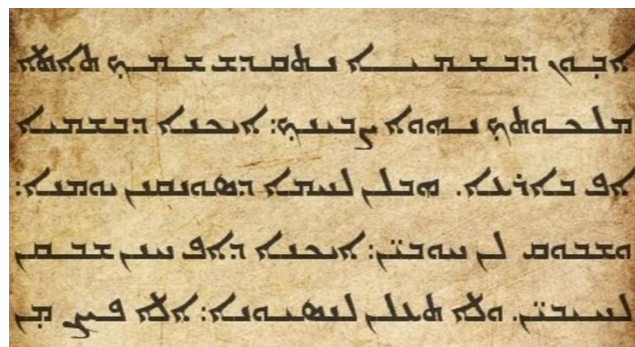 ܐܒܘܢ ܕܒܫܡܝܐ ܢܬܩܕܫ ܫܡܟ ܬܐܬܐ
ܡܠܟܘܬܟ ܢܗܘܐ ܨܒܝܢܟ: ܐܝܟܢܐ ܕܒܫܡܝܐ
ܐܦ ܒܐܪܥܐ. ܗܒܠܢ ܠܚܡܐ ܕܣܘܢܩܢܢ ܝܘܡܢܐ:
ܘܫܒܘܩ ܠܢ ܚܘܒܝ̈ܢ: ܐܝܟܢܐ ܕܐܦ ܚܢܢ ܫܒܩܢ
ܠܚܝܒܝ̈ܢ. ܘܠܐ ܬܥܠܢ ܠܢܣܝܘܢܐ: ܐܠܐ ܦܨܢ ܡܢ